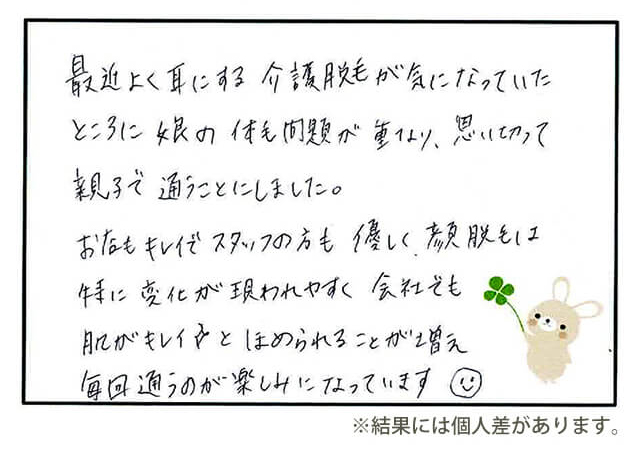 最近よく耳にする 介護脱毛が気になっていた
ところに 娘の 体毛問題が 重なり、思い切って
親子で 通うことにしました。
お店も キレイで スタッフの方も 優しく、顔脱毛は
特に 変化が 現われやすく 会社でも
肌がキレイ と ほめられることが増え
毎回通うのが楽しみになっています
※結果には個人差があります。